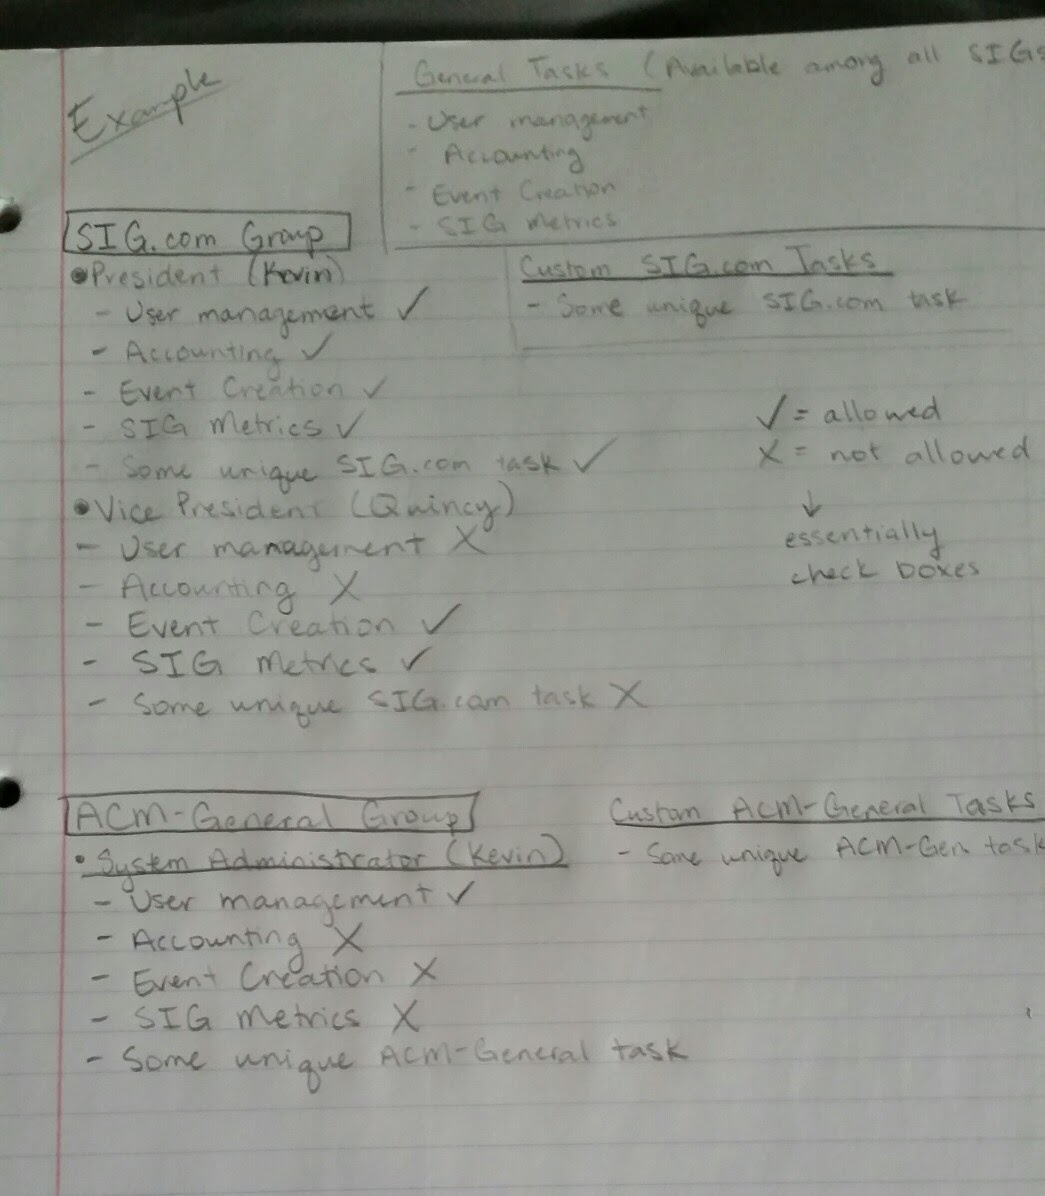 Example
General Tasks (Available among all SIGs
- User management
- Accounting
- Event Creation
- SIG Metrics
SIG.com Group
Custom SIG.com Tasks
- Some unique SIG.com task
•President (Kevin)
- User management ✓
- Accounting ✓
- Event Creation ✓
- SIG Metrics ✓
- Some unique SIG.com task ✓
•Vice President (Quincy)
- User management X
- Accounting X
- Event Creation ✓
- SIG Metrics ✓
- Some unique SIG.com task X
✓ = allowed
X = not allowed
↓
essentially
check boxes
ACM-General Group
• System Administrator (Kevin)
- User management ✓
- Accounting X
- Event Creation X
- SIG Metrics X
- Some unique ACM-General task
Custom ACM-General Tasks
- Some unique ACM-Gen task